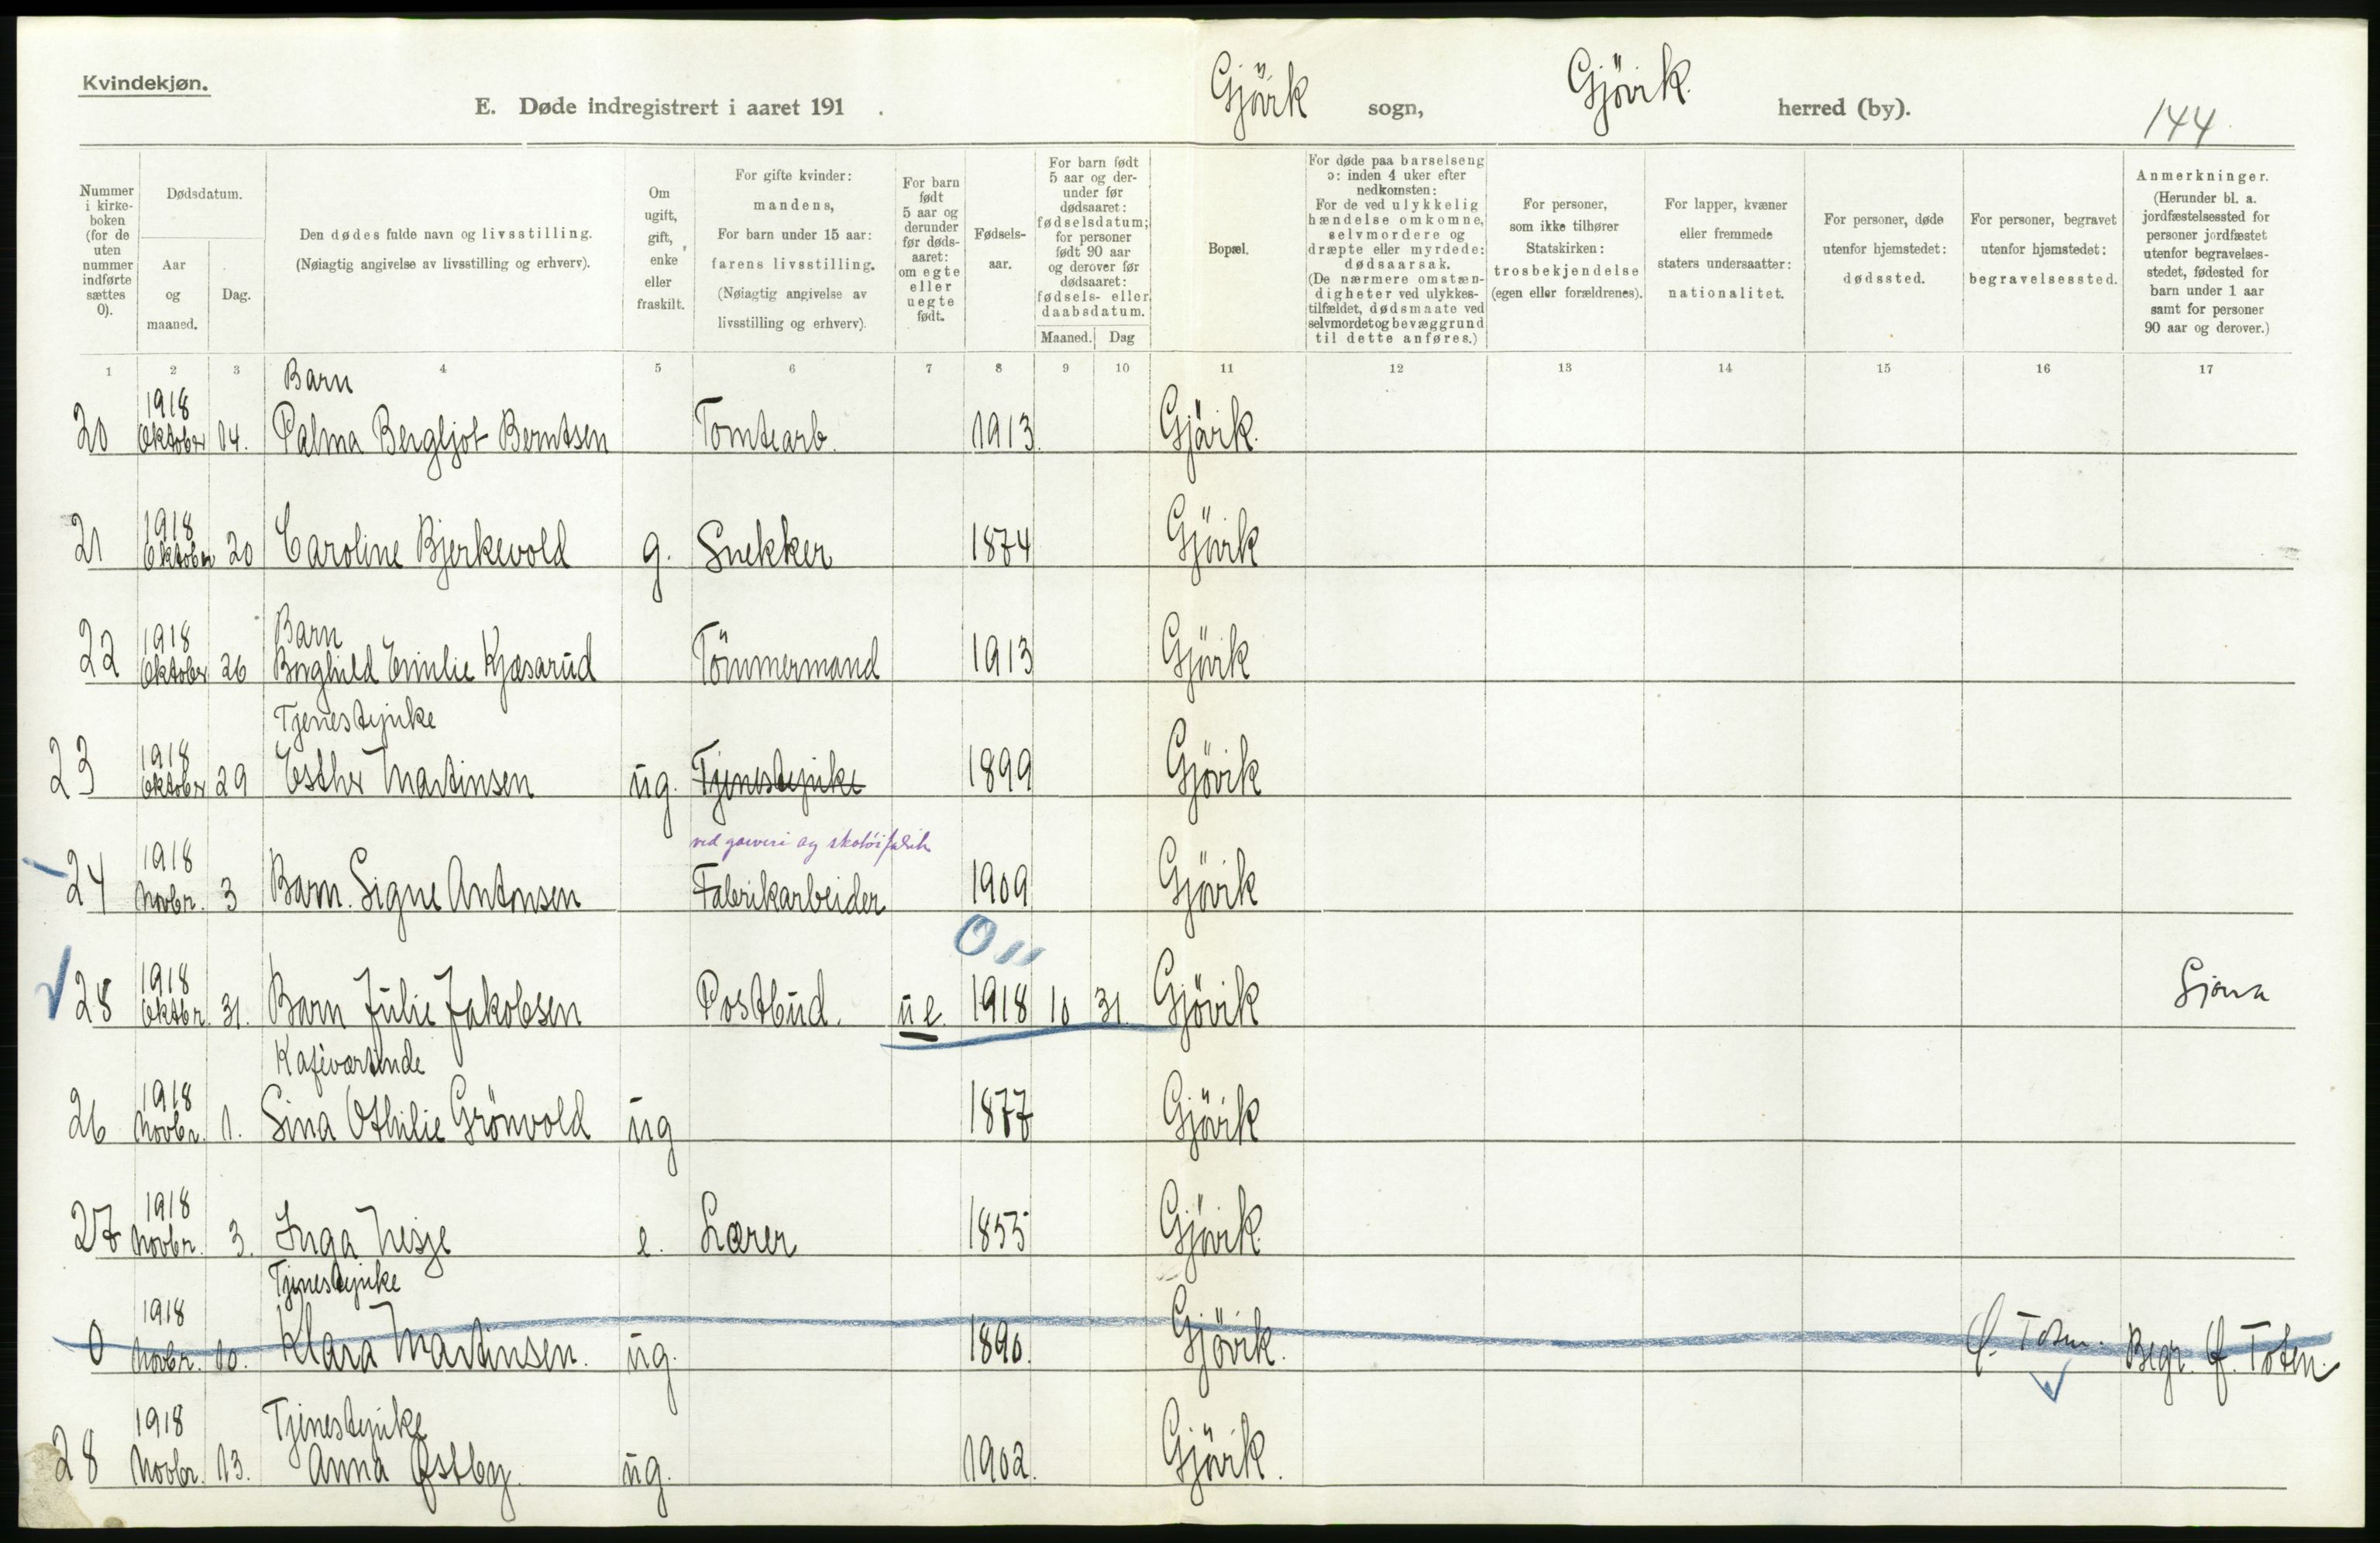 Kvindekjøn.
E. Døde indregistrert i aaret 191 .
Gjövik sogn, Gjövik. herred (by).
144
Nummer i kirkeboken (for de uten nummer indførte sættes 0).
Dødsdatum.
Aar og maaned.
Dag.
Den dødes fulde navn og livsstilling.
(Nøiagtig angivelse av livsstilling og erhverv).
Om ugift, gift, enke eller fraskilt.
For gifte kvinder: mandens,
For barn under 15 aar: farens livsstilling.
(Nøiagtig angivelse av livsstilling og erhverv).
For barn født 5 aar og derunder før dødsaaret: om egte eller uegte født.
Fødselsaar.
For barn født 5 aar og derunder før dødsaaret: fødselsdatum; for personer født 90 aar og derover før dødsaaret: fødsels- eller daabsdatum.
Maaned. Dag
Bopæl.
For døde paa barselseng ɔ: inden 4 uker efter nedkomsten:
For de ved ulykkelig hændelse omkomne, selvmordere og dræpte eller myrdede: dødsaarsak.
(De nærmere omstændigheter ved ulykkestilfældet, dødsmaate ved selvmordet og bevæggrund til dette anføres.)
For personer, som ikke tilhører Statskirken: trosbekjendelse (egen eller forældrenes).
For lapper, kvæner eller fremmede staters undersaatter: nationalitet.
For personer, døde utenfor hjemstedet: dødssted.
For personer, begravet utenfor hjemstedet: begravelsessted.
Anmerkninger.
(Herunder bl. a. jordfæstelsessted for personer jordfæstet utenfor begravelsesstedet, fødested for barn under 1 aar samt for personer 90 aar og derover.)
1 2 3 4 5 6 7 8 9 10 11 12 13 14 15 16 17
1918 Barn
20 Oktober 14. Palma Bergljot Berntsen Tomtearb. 1913. Gjövik.
1918
21 Oktober 20 Caroline Bjerkevold g. Snekker 1874 Gjövik
1918 Barn
22 Oktober 26 Borghild Emilie Kjæsarud Tömmermand 1913 Gjövik
1918 Tjenestepike
23 Oktober 29 Esther Martinsen ug. Tjenestepike 1899 Gjövik
1918 ved garveri og skotöifabrik
24 Novbr. 3 Barn. Signe Antonsen Fabrikarbeider 1909 Gjövik
0 "
1918
25 Oktbr. 31. Barn Julie Jakobsen Postbud. u e. 1918 10 31. Gjövik
1918 Kaféværtinde
26 Novbr. 1. Sina Othilie Grönvold ug 1877 Gjövik
1918
27 Novbr. 3. Inga Nesje e. Lærer 1855 Gjövik.
1918 Tjenestepike
0 Novbr. 10. Klara Martinsen. ug. 1890. Gjövik. Ø. Toten. Begr. Ø. Toten.
1918 Tjenestepike
28 Novbr. 13. Anna Østby. ug. 1902. Gjövik.